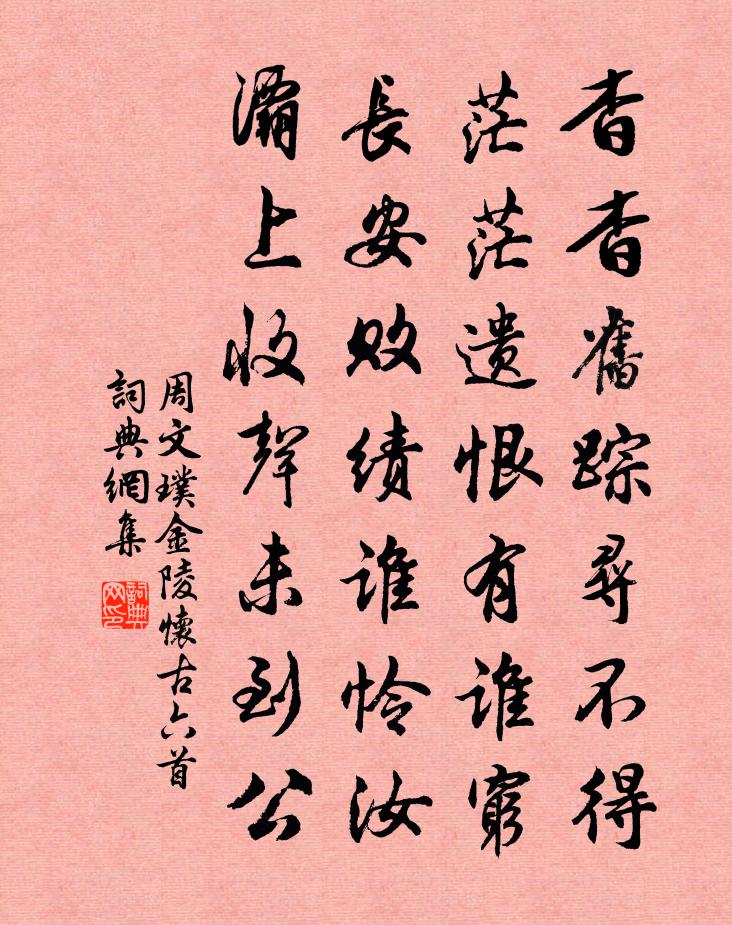 杳杳舊踪尋不得
茫茫遺恨有誰窮
長安敗績誰怜汝
灞上收聲未到公
周文璞金陵懷古六首
詞典網集
詞典网印